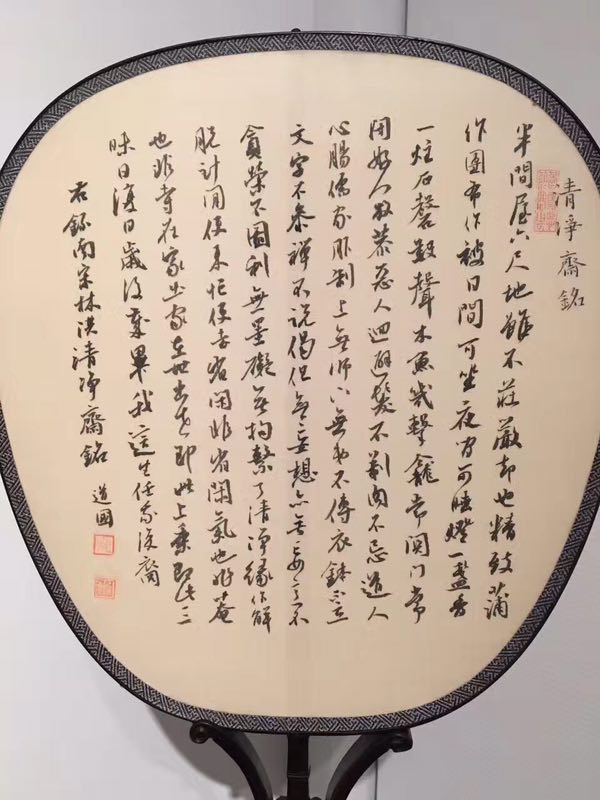 清淨齋銘
半間屋六尺地雖不莊嚴却也精致蒲
作團布作被日間可坐夜间可睡燈一盞香
一炷石磬數聲木魚幾擊龕常関门常
閉好人放恭惡人迴避髮不剃肉不忌道人
心腸儒家服制上無師下無弟不傳衣鉢不立
文字不參禪不說偈但無妄想亦無妄意不
貪榮不圖利無罣礙無拘繫了清淨緣作解
脫計閒便來忙便去省閑非省閑氣也非菴
也非寺在家出家在世出世即此上乘即此三
昧日復日歲復歲畢我這生任我後裔
右錄南宋林洪清淨齋銘 道國